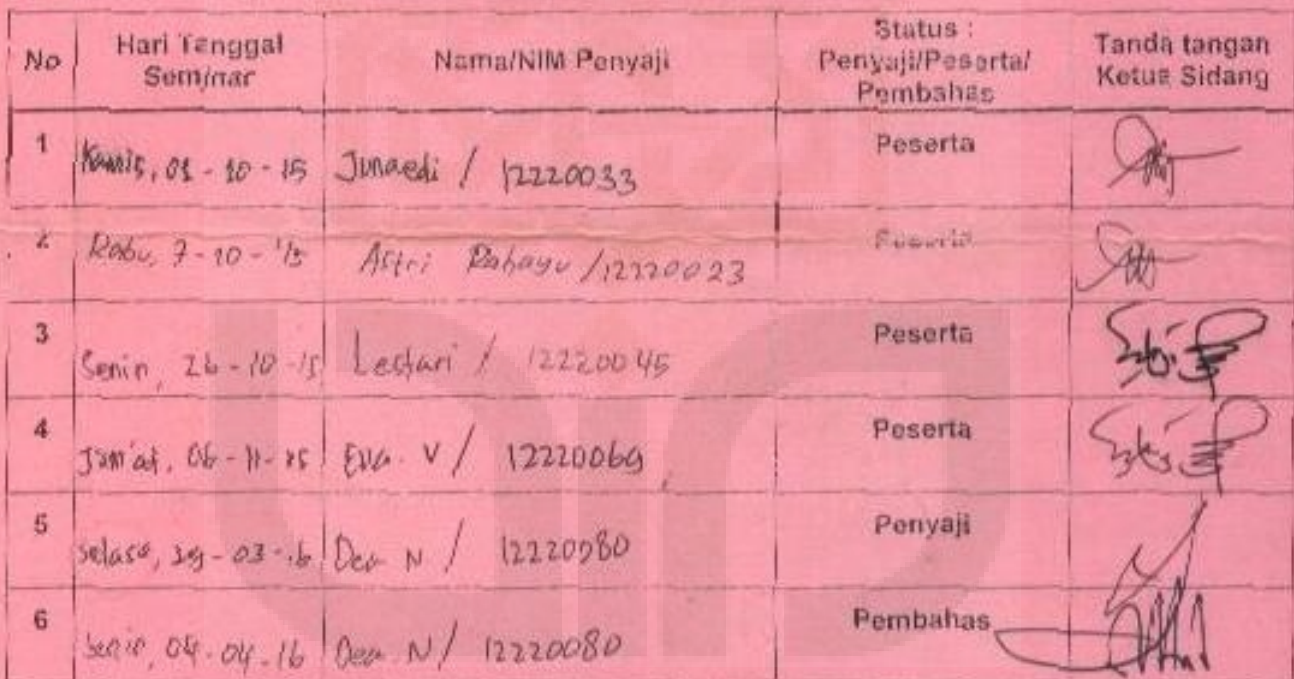 No
Hari Tanggal
Seminar
Nama/NIM Penyaji
Status :
Penyaji/Peserta/
Pembahas
Tanda tangan
Ketua Sidang
1 Kamis, 01-10-15 Junaedi / 12220033 Peserta
2 Rabu, 7-10-'15 Astri Rahayu / 12220023 Peserta
3 Senin, 26-10-15 Lestari / 12220045 Peserta
4 Jum'at, 06-11-15 Eva. V / 12220069 Peserta
5 Selasa, 29-03-16 Dea N / 12220080 Penyaji
6 Senin, 04-04-16 Dea N / 12220080 Pembahas